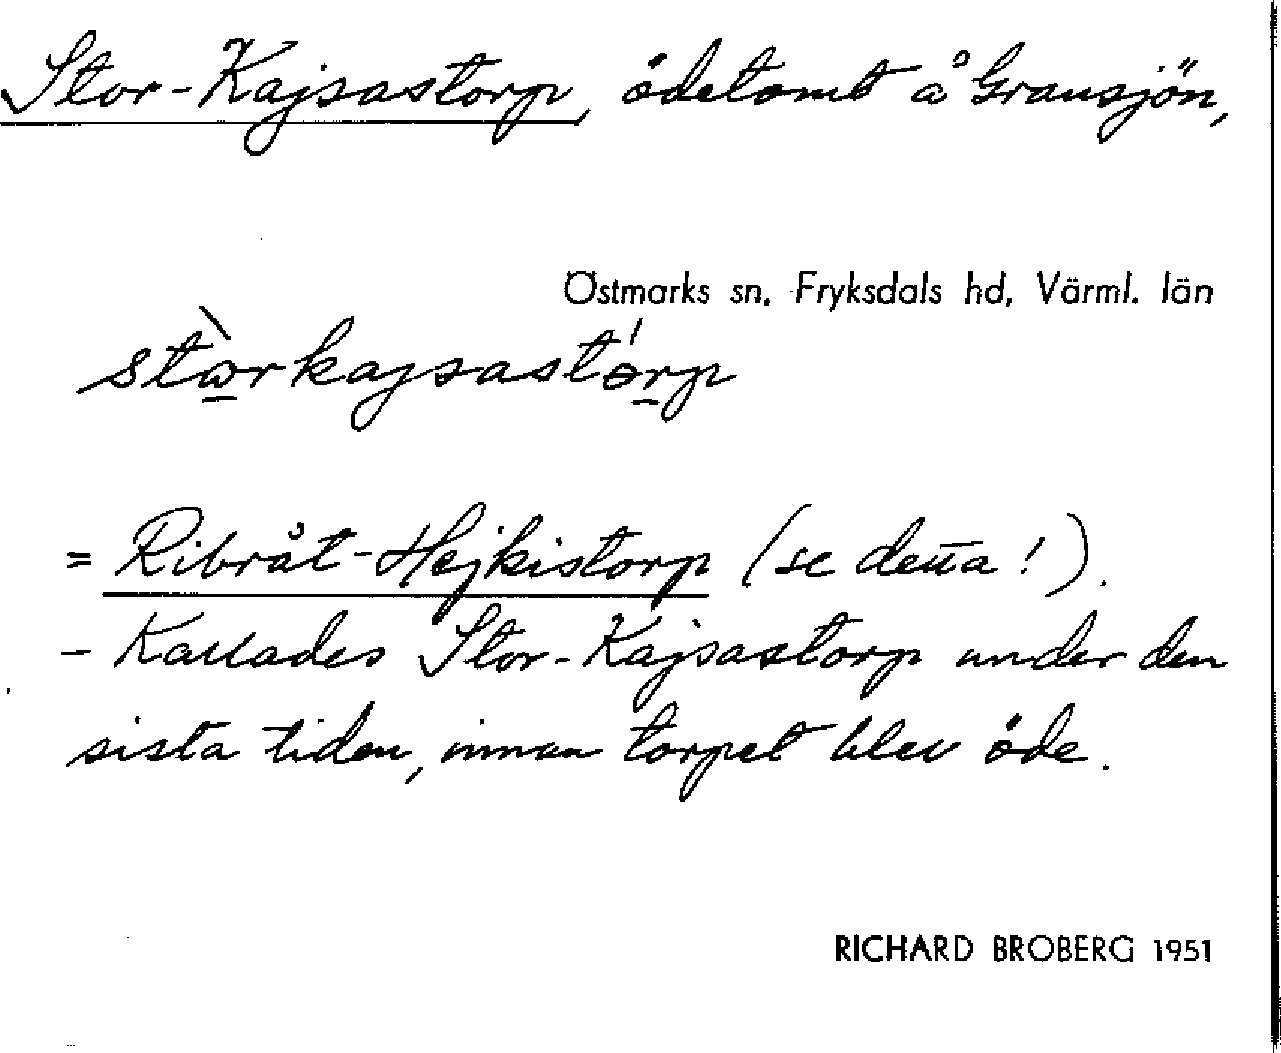 Stor-Kajsastorp, ödetomt å Gransjön,
Östmarks sn, Fryksdals hd, Värml. län
stὼrkajsastórp
= Ribråt-Hejkistorp (se detta!).
- Kallades Stor-Kajsastorp under den
sista tiden, innan torpet blev öde.
RICHARD BROBERG 1951